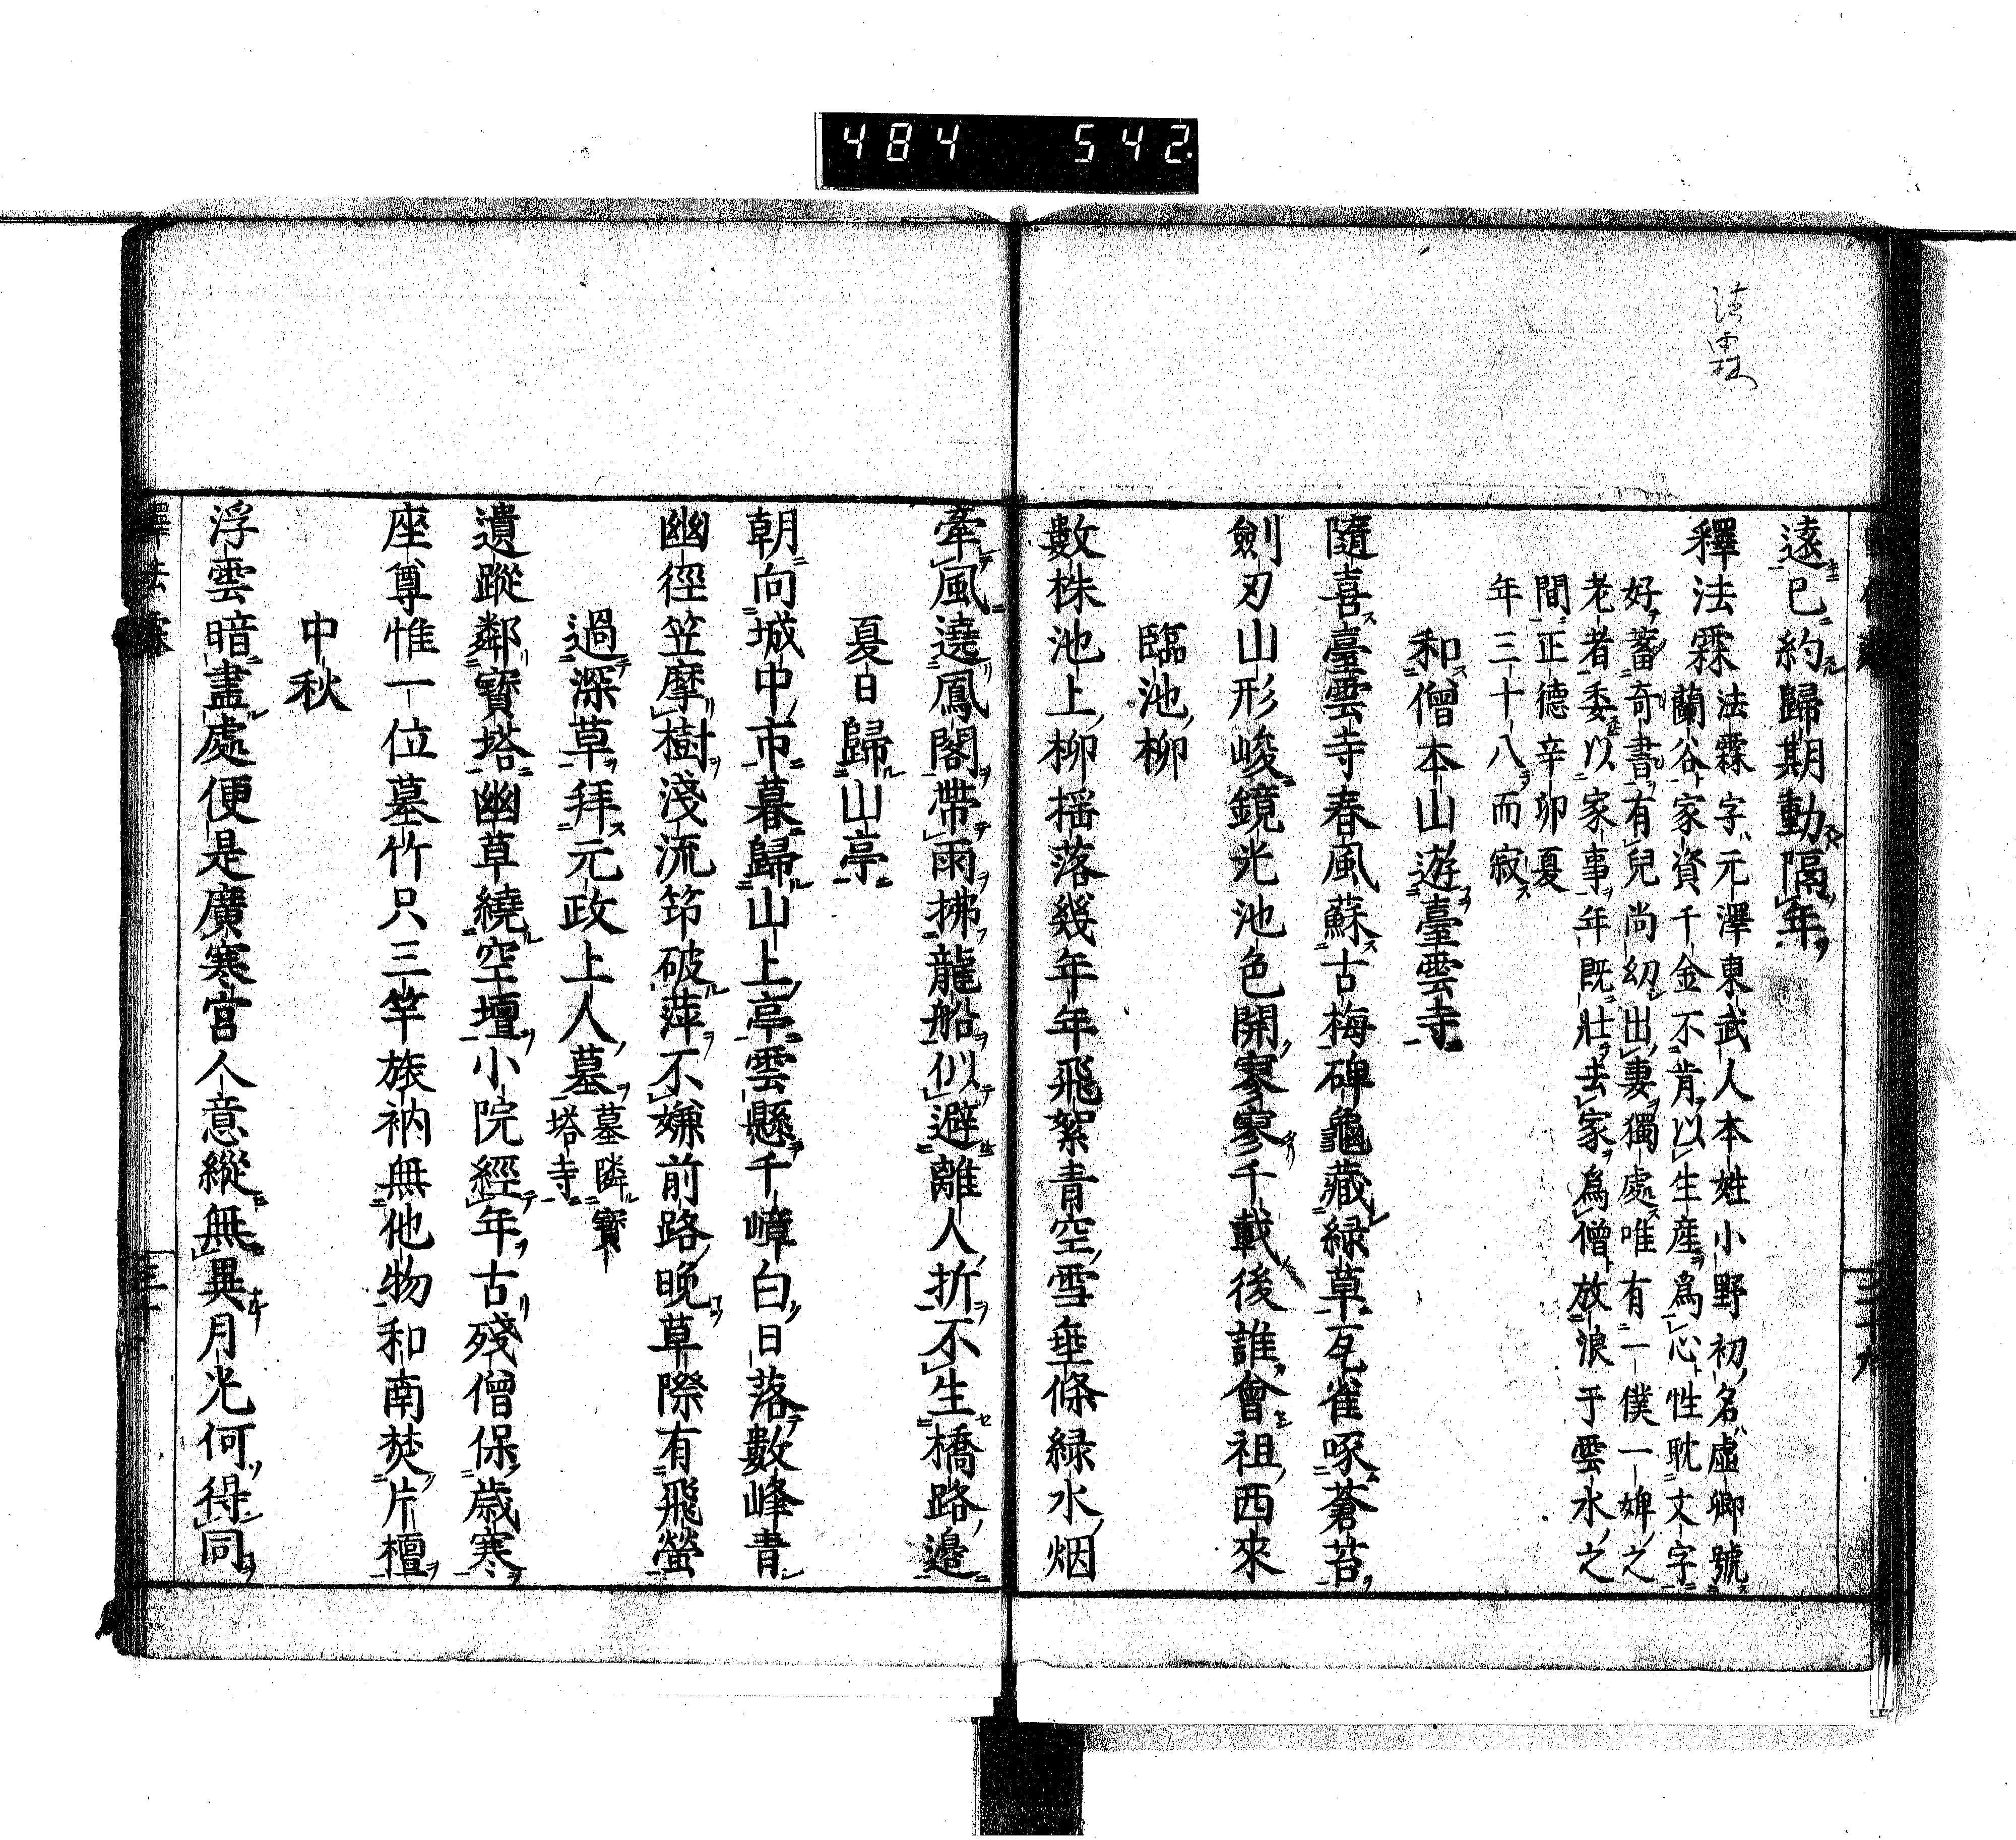 484 542
法霖
遠已約歸期動隔年
釋法霖
法霖字元澤東武人本姓小野初名虛卿號
蘭谷家資千金不肯以生産爲心性耽文字
好蓄奇書有兒尚幼出妻獨處唯有一僕一婢之
老者委以家事年既壯去家爲僧放浪于雲水之
間正德辛卯夏
年三十八而寂
和僧本山遊臺雲寺
隨喜臺雲寺春風蘇古梅碑龜藏緑草瓦雀啄蒼苔
劍刃山形峻鏡光池色開寥寥千載後誰會祖西來
臨池柳
數株池上柳揺落幾年年飛絮青空雪垂條緑水烟
牽風遶鳳閣帶雨拂龍船似避離人折不生橋路邊
夏日歸山亭
朝向城中市暮歸山上亭雲懸千嶂白日落數峰青
幽徑笠摩樹淺流筇破萍不嫌前路晚草際有飛螢
過深草拜元政上人墓
墓隣寶
塔寺
遺蹤鄰寶塔幽草繞空壇小院經年古殘僧保歳寒
座尊惟一位墓竹只三竿旅衲無他物和南焚片檀
中秋
浮雲暗盡處便是廣寒宮人意縱無異月光何得同
釋法霖